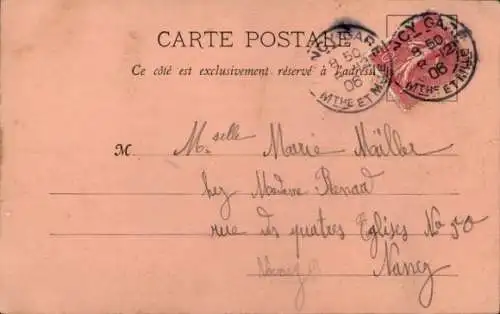 CARTE POSTALE
Ce côté est exclusivement réservé à l'adresse
NCY GARE
8 50
06
MTHE ET MLLE
NCY GARE
8 50
06
MTHE ET MLLE
M. Mselle Marie Müller
hez Madame Renard
rue des quatres Eglises No 50
Nancy